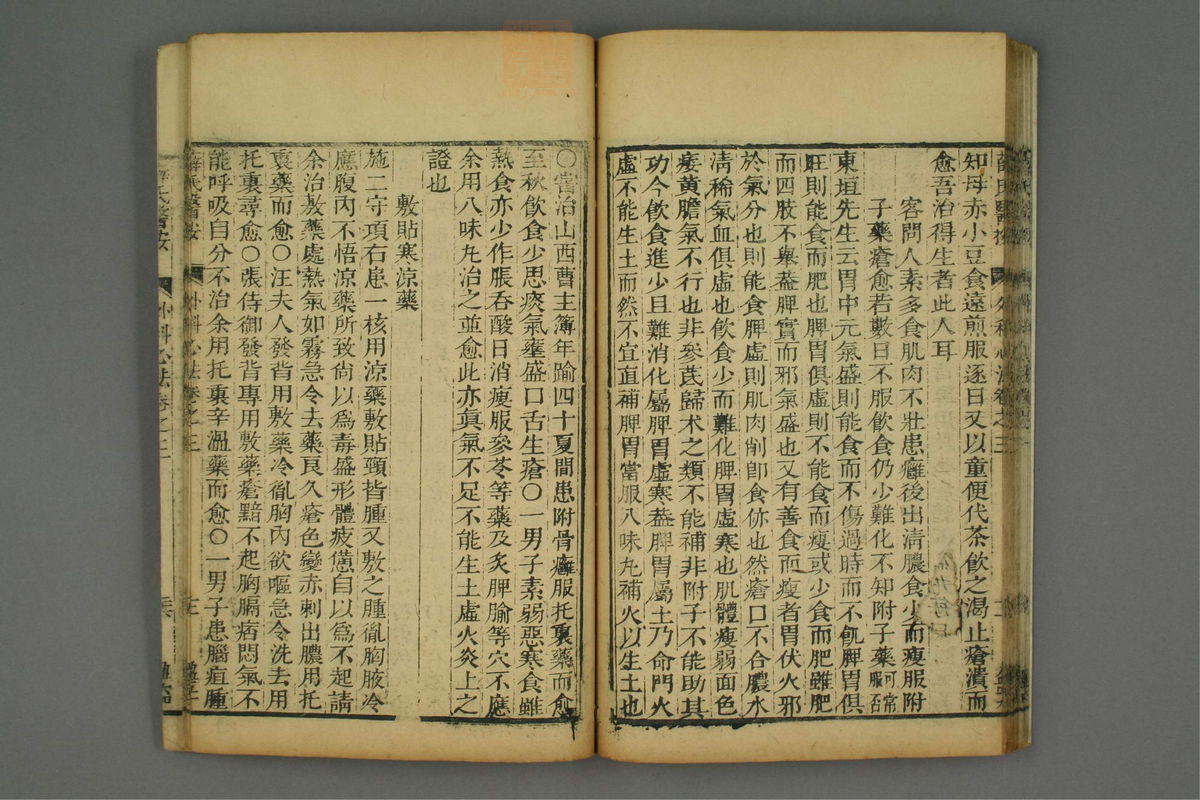 知母赤小豆食遠煎服逐日又以童便代茶飲之渴止瘡潰而
愈吾治得生者此人耳
客問人素多食肌肉不壯患癰後出清膿食少而瘦服附
子藥瘡愈若數日不服飲食仍少難化不知附子藥可常服否
東垣先生云胃中元氣盛則能食而不傷過時而不飢脾胃俱
旺則能食而肥也脾胃俱虛則不能食而瘦或少食而肥雖肥
而四肢不舉蓋脾實而邪氣盛也又有善食而瘦者胃伏火邪
於氣分也則能食脾虛則肌肉削卽食㑊也然瘡口不合膿水
清稀氣血俱虛也飲食少而難化脾胃虛寒也肌體瘦弱面色
痿黃膽氣不行也非參芪歸朮之類不能補非附子不能助其
功今飲食進少且難消化屬脾胃虛寒蓋脾胃屬土乃命門火
虛不能生土而然不宜直補脾胃當服八味丸補火以生土也
〇嘗治山西曹主簿年踰四十夏間患附骨癰服托裏藥而愈
至秋飲食少思痰氣壅盛口舌生瘡〇一男子素弱惡寒食雖
熱食亦少作脹吞酸日消瘦服參苓等藥及炙脾腧等穴不應
余用八味丸治之並愈此亦眞氣不足不能生土虛火炎上之
證也
敷貼寒涼藥
施二守項右患一核用涼藥敷貼頸皆腫又敷之腫徹胸腋冷
應腹內不悟涼藥所致尙以爲毒盛形體疲憊自以爲不起請
余治敖藥處熱氣如霧急令去藥良久瘡色變赤刺出膿用托
裏藥而愈〇汪夫人發背用敷藥冷徹胸內欲嘔急令洗去用
托裏尋愈〇張侍御發背專用敷藥瘡黯不起胸膈痞悶氣不
能呼吸自分不治余用托裏辛溫藥而愈〇一男子患腦疽腫
薛氏醫按
外科心法卷之三